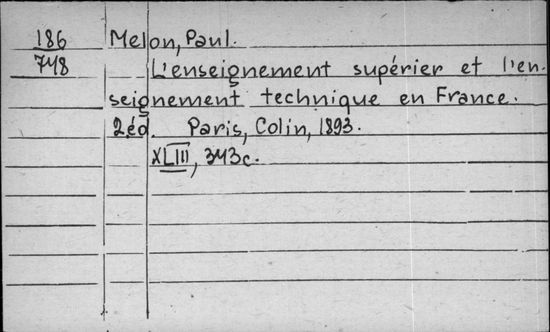 186 Melon, Paul.
748 L'enseignement supérier et l'en-
seignement technique en France.
2.éd. Paris, Colin, 1893.
XLIII, 343c.